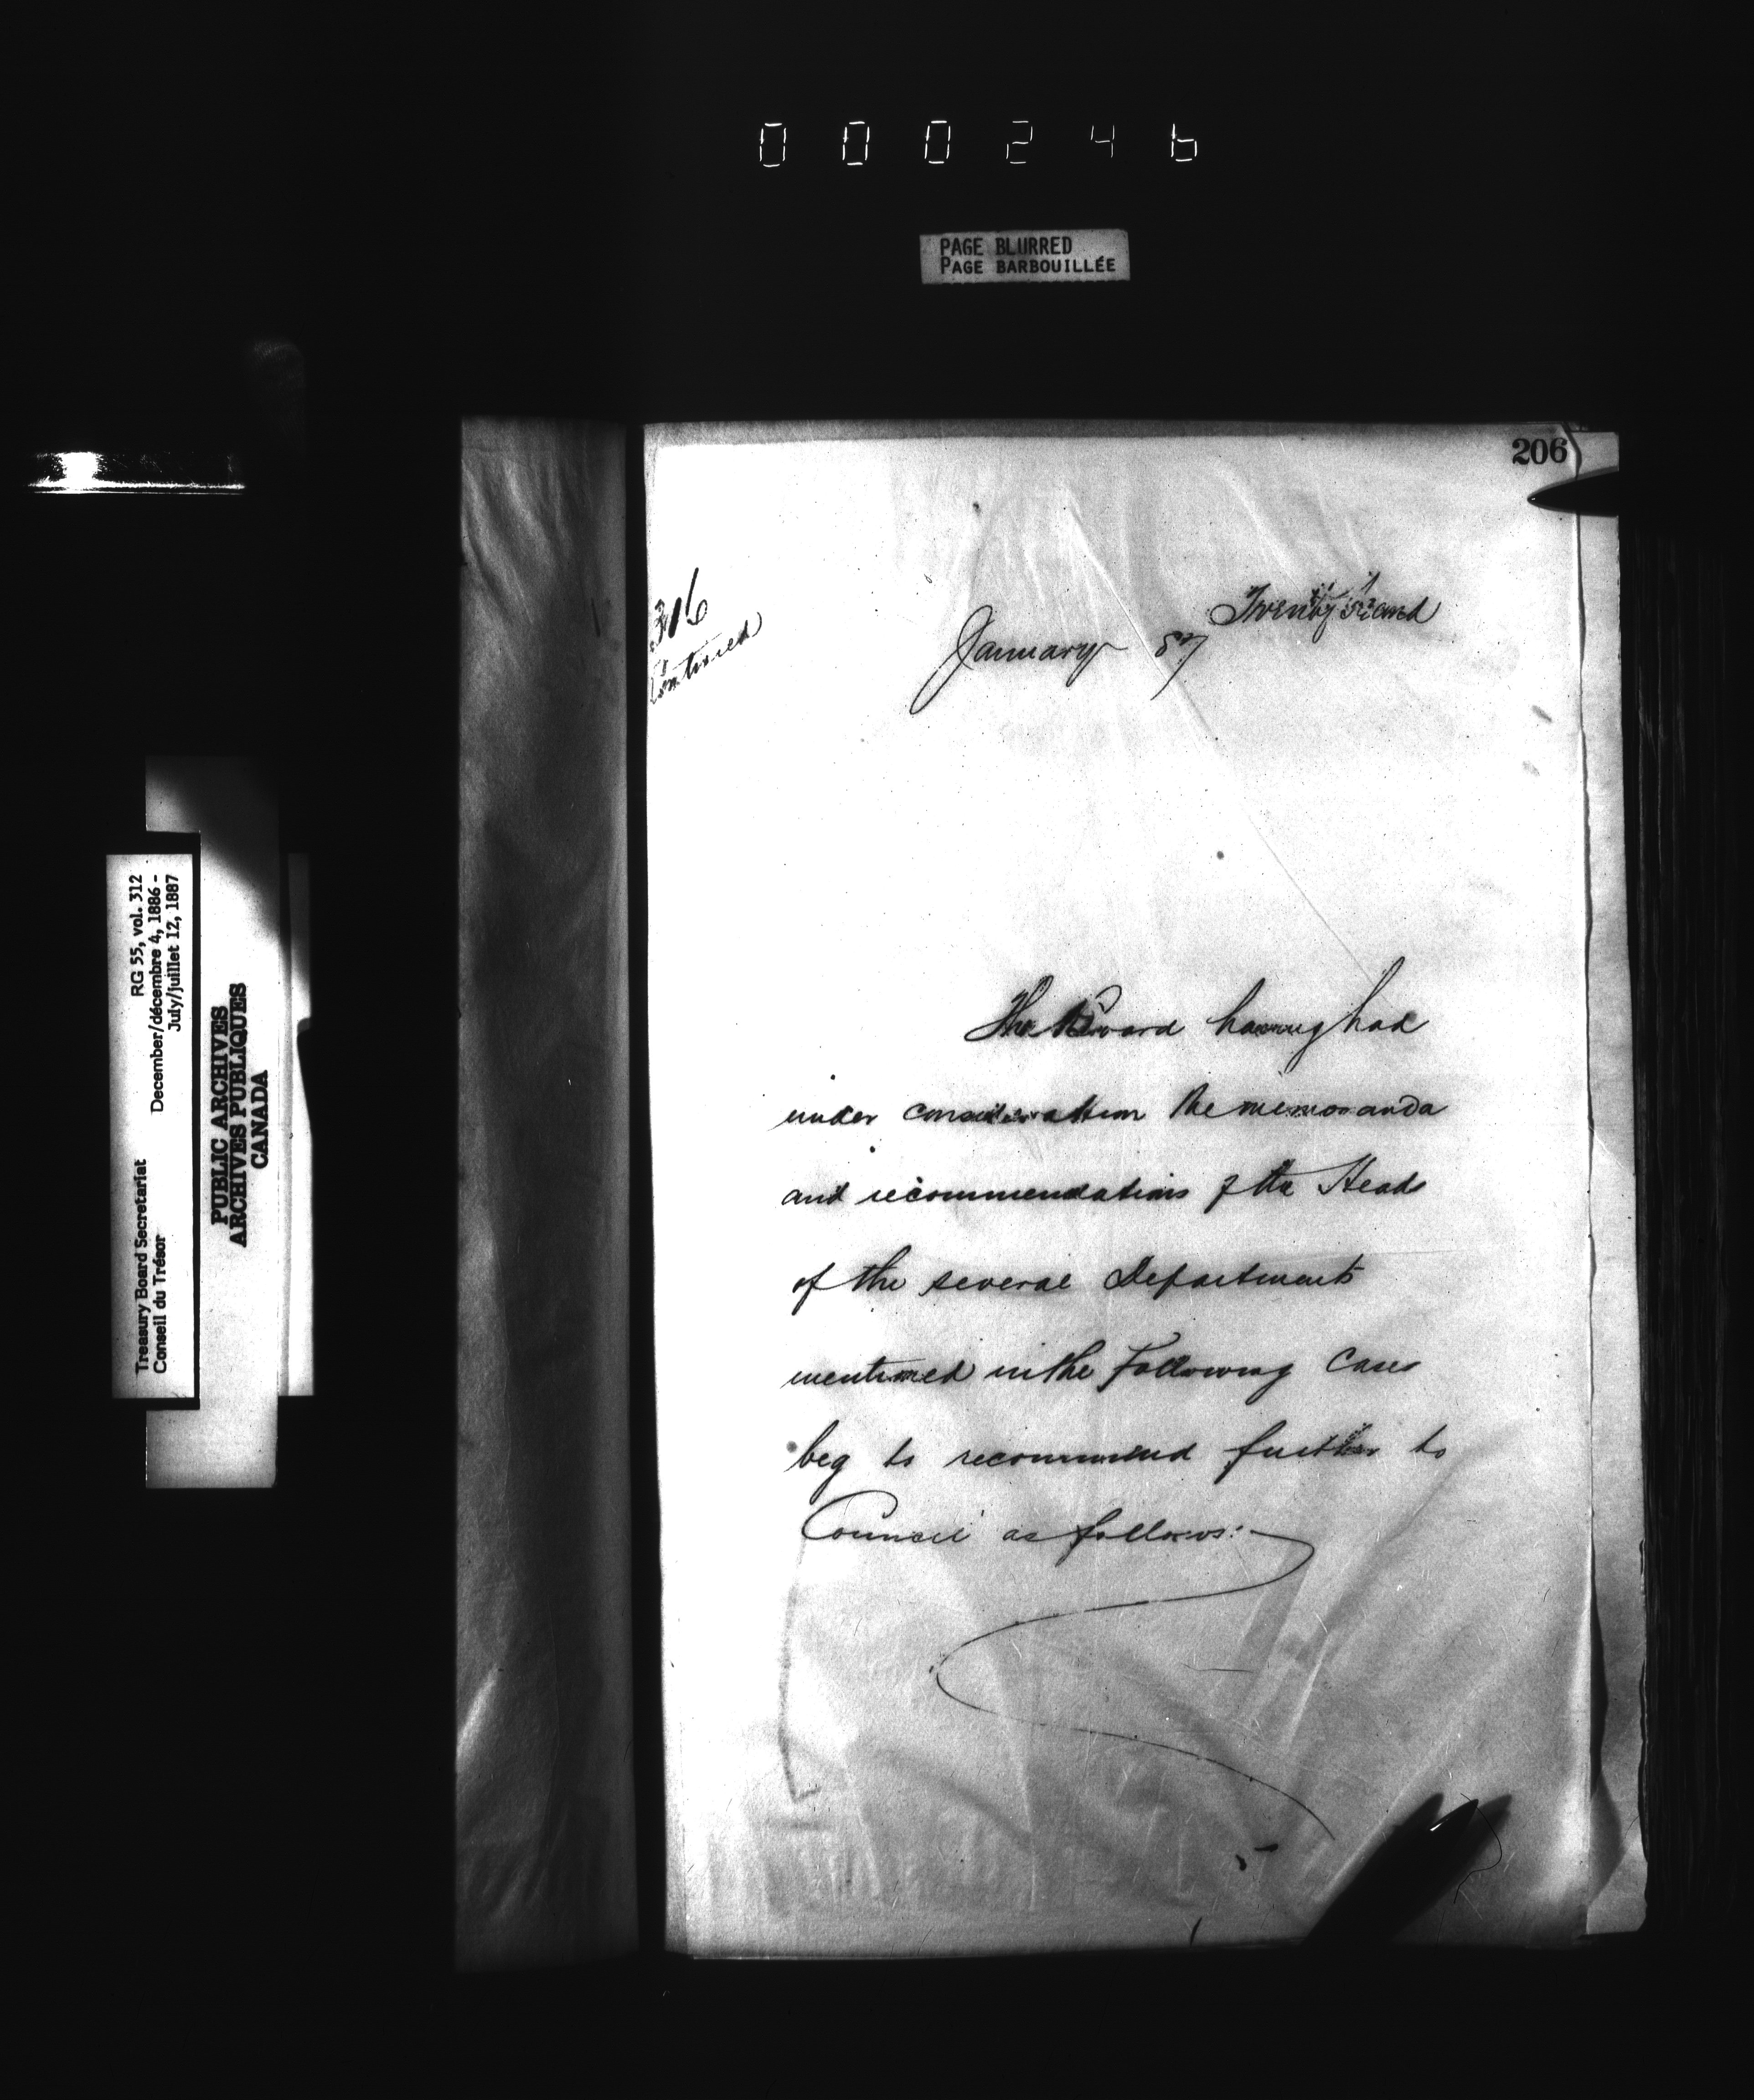 000246
PAGE BLURRED
PAGE BARBOUILLÉE
206
316
Continued
Twenty
January 87
The Board having had
under consideration the memoranda
and recommendations of the Heads
of the several Departments
mentioned in the following Cases
beg to recommend further to
Council as follows:-
Treasury Board Secretariat RG 55, vol. 312
Conseil du Trésor December/décembre 4, 1886 -
July/juillet 12, 1887
PUBLIC ARCHIVES
ARCHIVES PUBLIQUES
CANADA